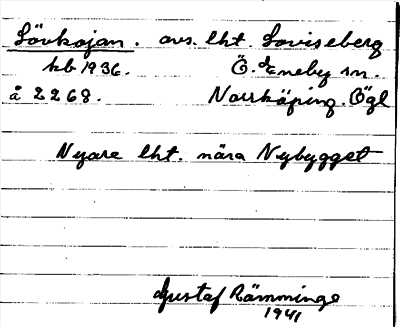 Lövkojan. avs. lht. Loviseberg
kb 1936. Ö. Eneby sn.
å 2268. Norrköping. Ögl
Nyare lht. nära Nybygget
Gustaf Rämminge
1941